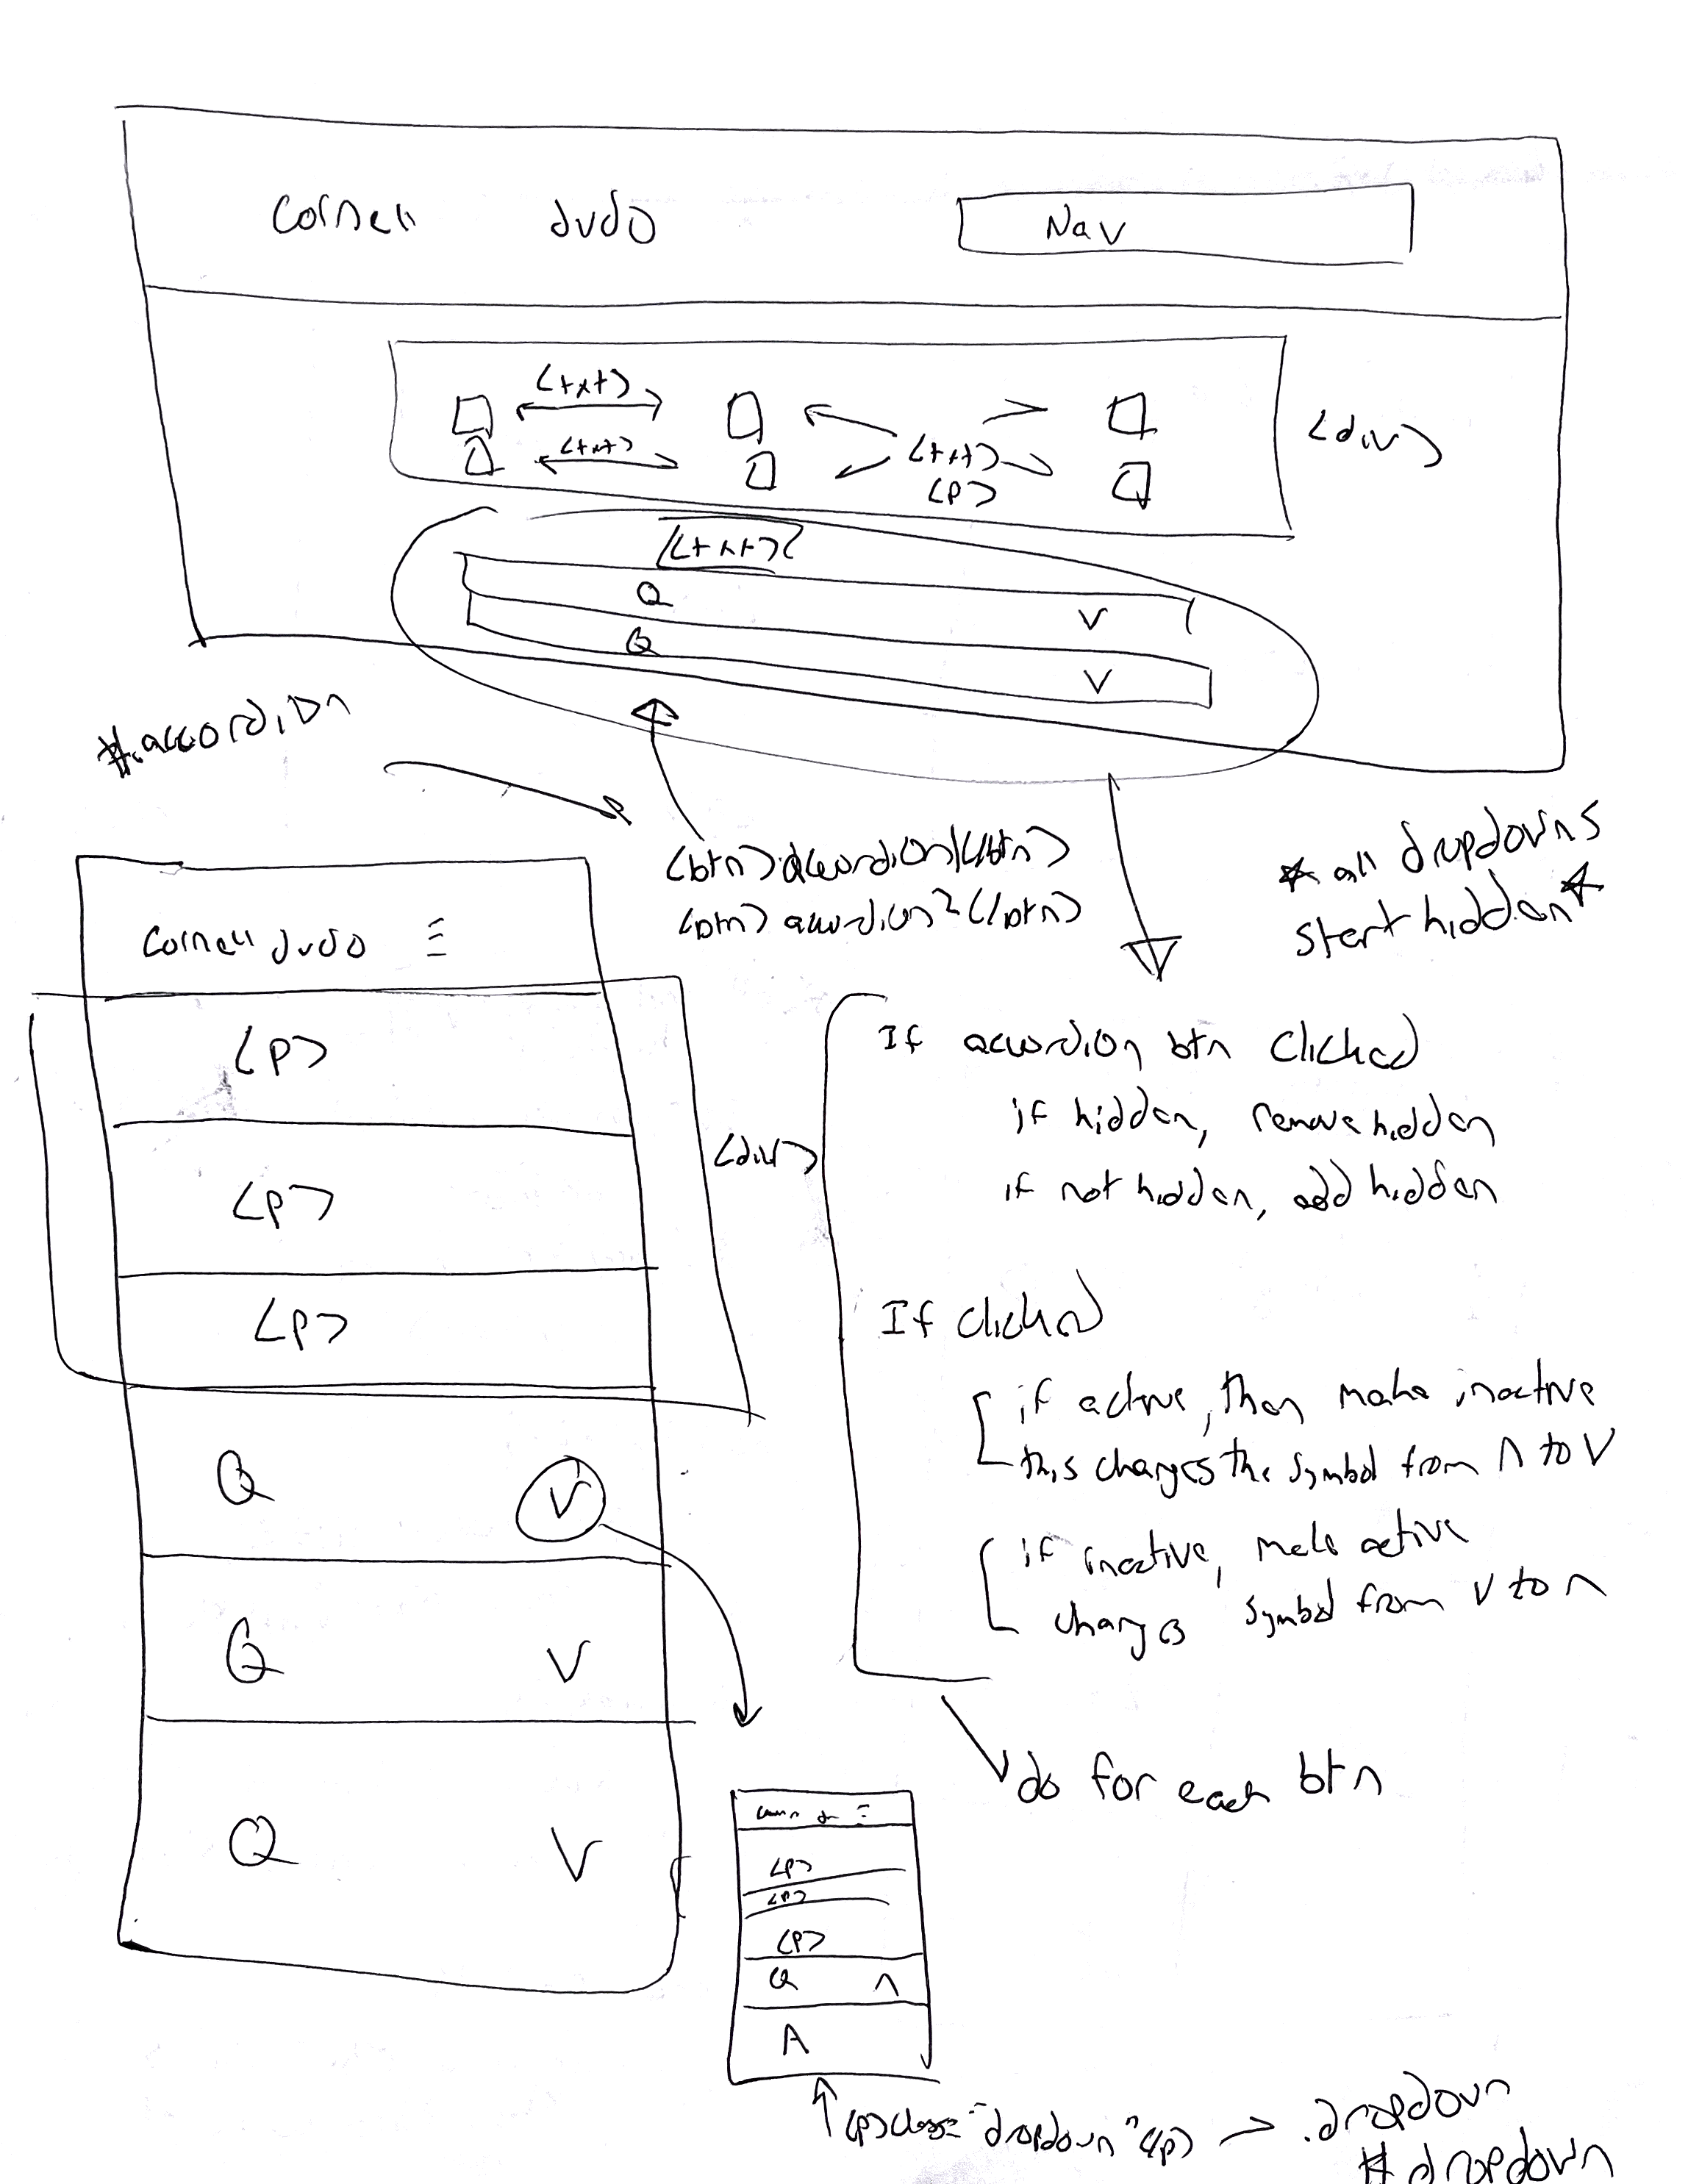 Cornell Judo
Nav
<txt>
<txt>
<txt>
<p>
<div>
<txt>
Q V
Q V
#.accordion
<btn> accordion1</btn>
<btn> accordion2</btn>
* all dropdowns
start hidden *
Cornell Judo ☰
<p>
<p>
<p>
<div>
Q V
Q V
Q V
If accordion btn clicked
if hidden, remove hidden
if not hidden, add hidden
If clicked
if active, then make inactive
this changes the symbol from Λ to V
if inactive, make active
changes symbol from V to Λ
do for each btn
☰
<p>
<p>
<p>
Q Λ
A
<p> class="dropdown" </p> → .dropdown
# dropdown